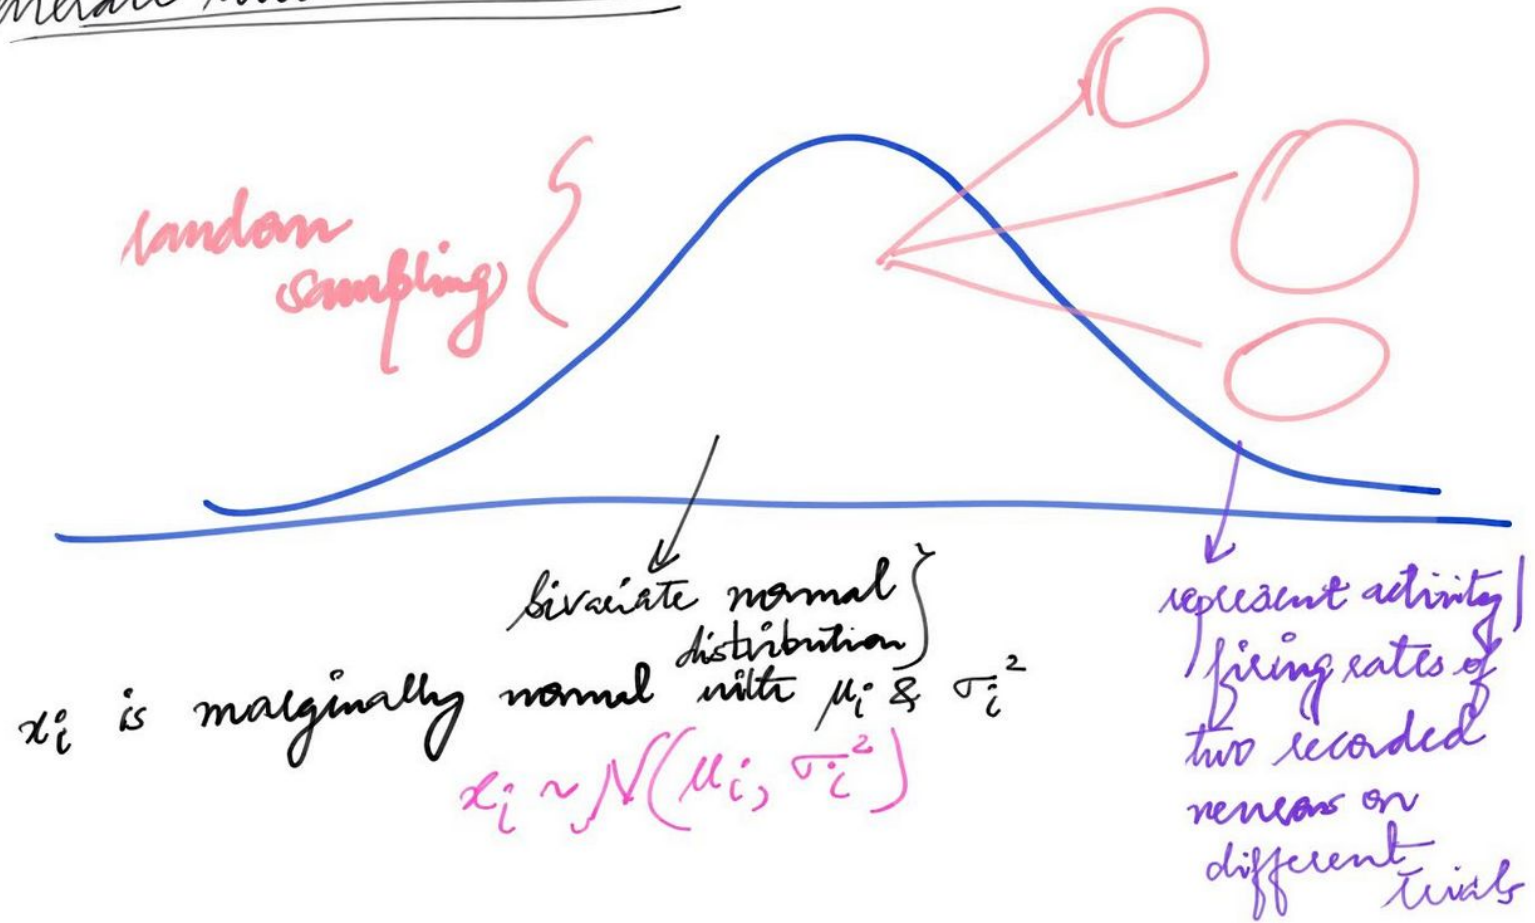 random
sampling
bivariate normal
distribution
x_i is marginally normal with μ_i & σ_i²
x_i ~ N(μ_i, σ_i²)
represent activity
firing rates of
two recorded
neurons on
different
trials